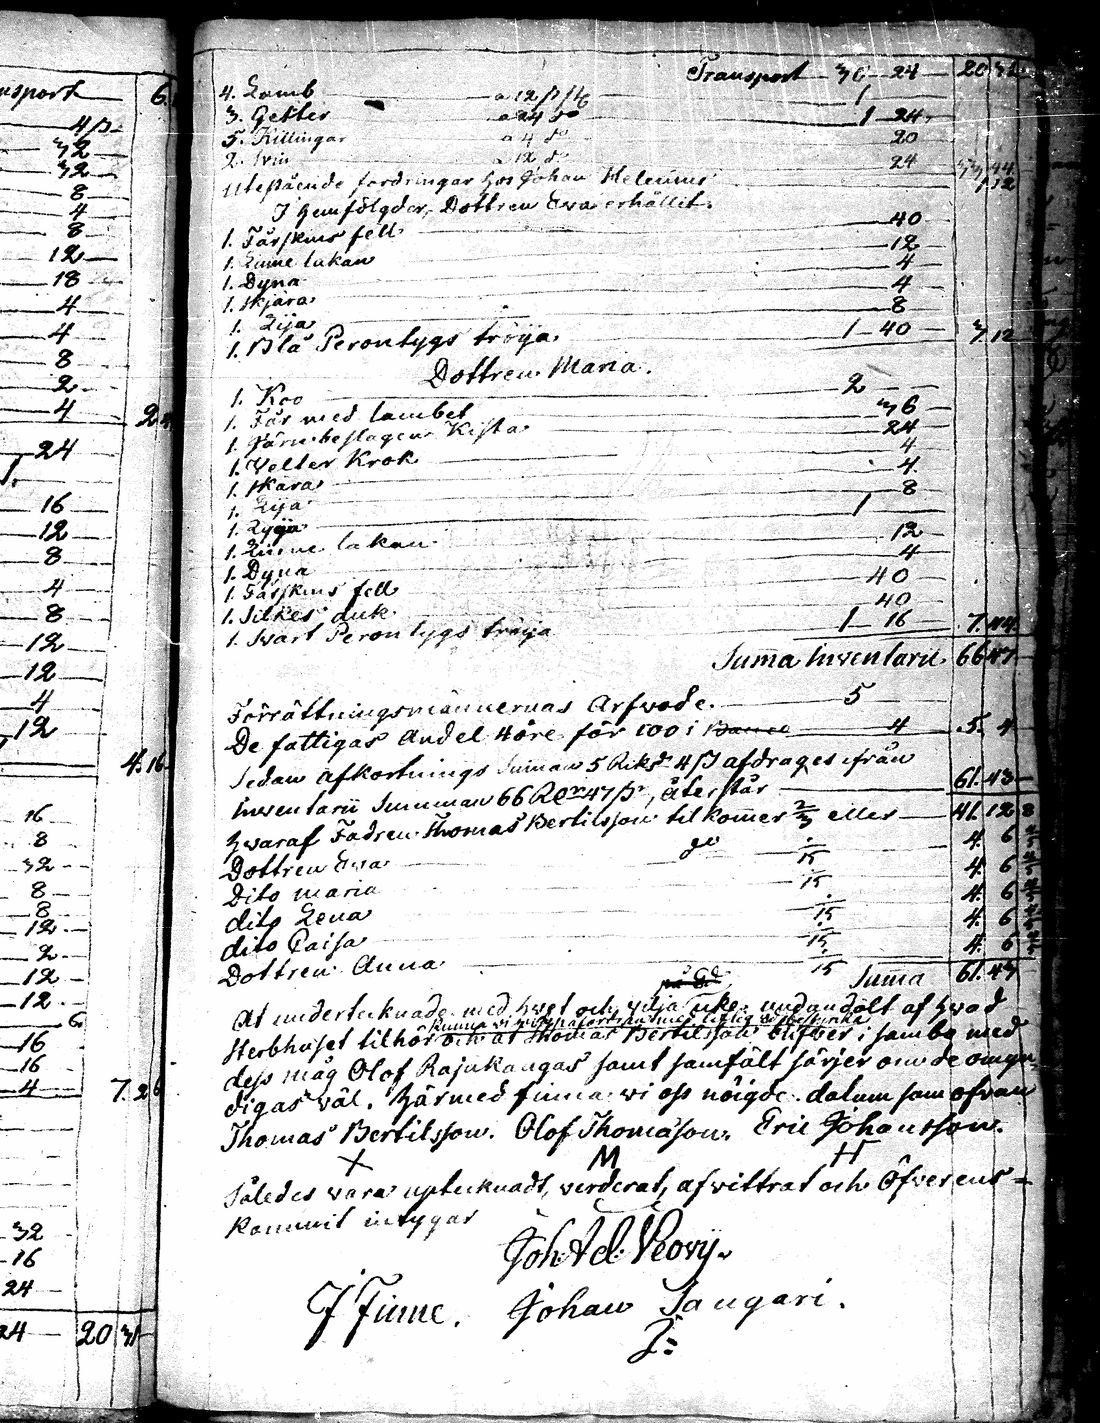 nsport 6
4 ß
32
32
8
4
8
12
18
4
4
8
2
4 2
24
16
12
8
4
8
12
12
4
12
4. 16
16
8
32
8
8
12
2
12
12
6
16
16
4 7. 26
32
16
24
24 20 31
Transport 36 24 20 31
4. Lamb a 12 ß st 1
3. Getter a 24 do 1 24
5. Killingar a 4 do 20
2. Svin a 12 do 24
Utestående fordringar hos Johan
I Hemfölgder, Dottren Eva erhållit.
1. Fårskins fell 40
1. Linne lakan 12
1. Dyna 4
1. Skjära 4
1. Lija 8
1. Blå Perontygs tröija 1 40 3 12
Dottren Maria.
1. Koo 2
1. Får med lambet 36
1. Järnbeslagen Kista 24
1. Velter Krok 4
1. Skära 4
1. Lija 8
1. 1
1. Linne lakan 12
1. Dyna 4
1. Fårskins fell 40
1. Silkes duk 40
1. Svart Perontygs tröija 1 16 7. 44
Suma Inventarii 66 47
Förrättningsmännernas Arfvode. 5
De fattigas Andel 4 öre för 100 i Banco 4 5. 4
Sedan afkortnings Suman 5 Riksd 4 ß afdrages ifrån
Inventarii Summan 66 RDr 47 ßr, återstår 61. 43
hvaraf Fadren Thomas Bertilsson tilkommer 2/3 eller 41 12 8
Dottren Eva do 1/15 4. 6 2/5
Dito maria 1/15 4. 6 2/5
dito Lena 1/15 4. 6 2/5
dito Caisa 1/15 4. 6 2/5
Dottren Anna 1/15 4. 6 2/5
Suma 61. 43
At undertecknade med vet och vilja icke undandölt af hvad
Sterbhuset tilhör och at Thomas Bertilsson blifver i sambo med
dess måg Olof Rajukangas samt samfält sörjer om de omyn-
digas väl. Härmed finna vi oss nöigde. datum som ofvan
Thomas Bertilsson. Olof Thomason. Eric Johansson.
X M H
Således vara uptecknadt, verderat, afvittrat och Öfverens=
kommit intygar
Joh: Ad: Keovij.
J Finne. Johan Sangari.